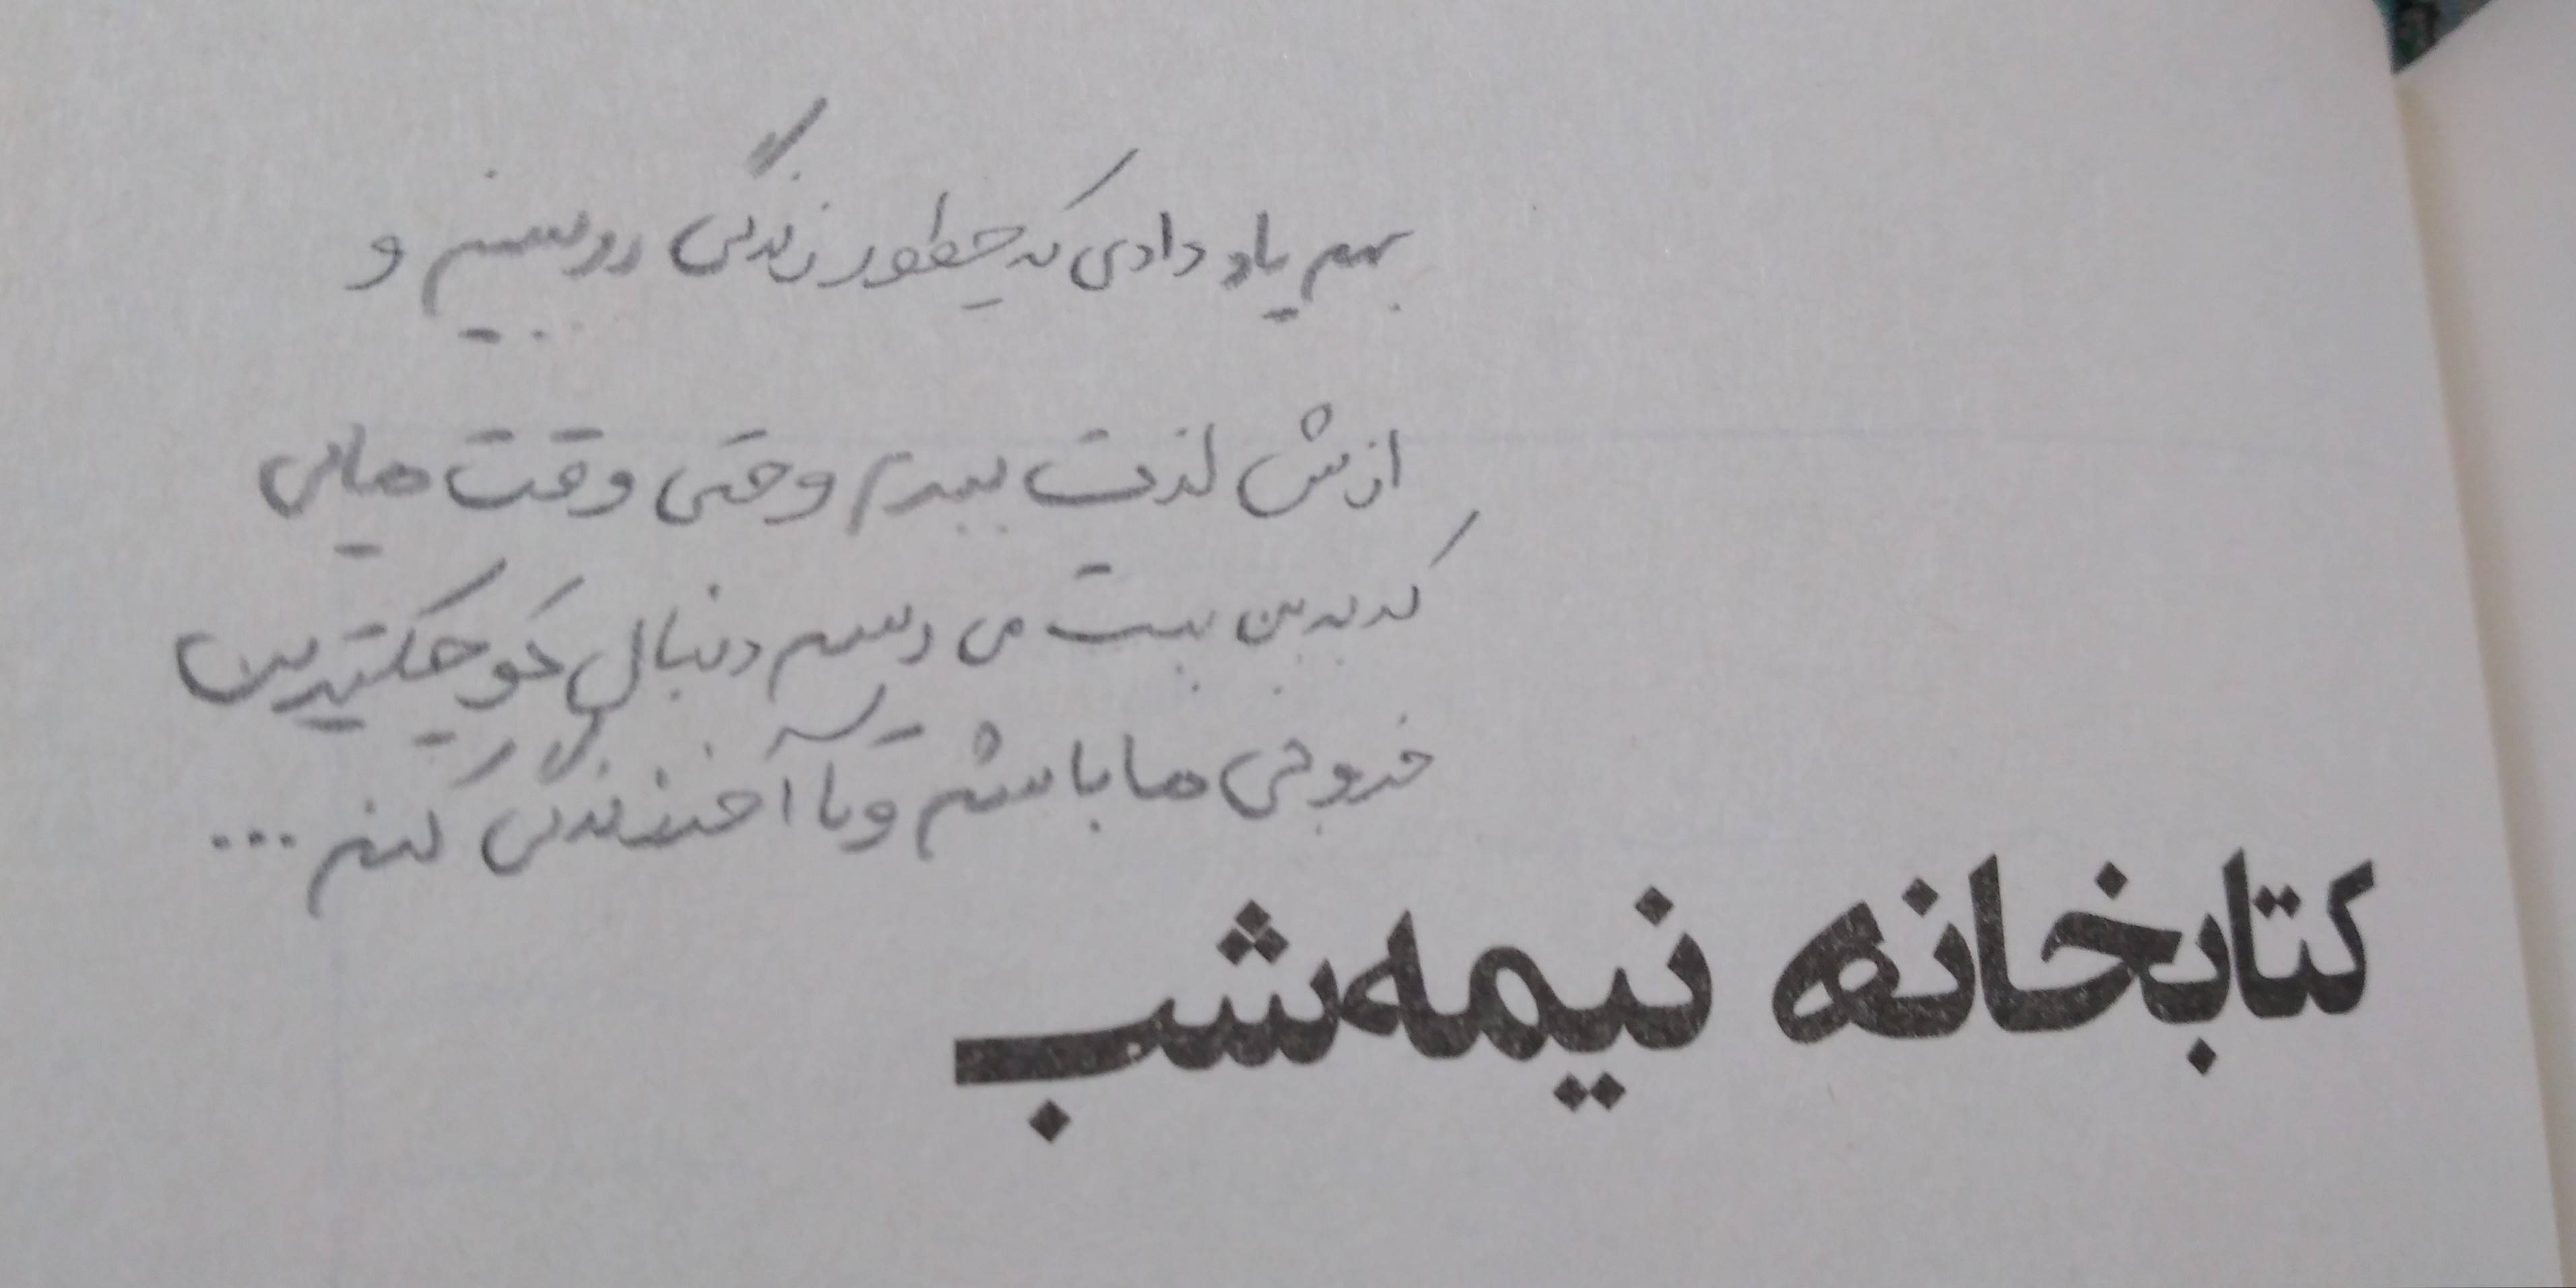 بهم یاد دادی که چطور زندگی رو ببینم و
ازش لذت ببرم و حتی وقت هایی
که به بن بست می رسم دنبال کوچکترین
خروجی ها باشم و تا آخر زندگی کنم ...
کتابخانه نیمه‌شب